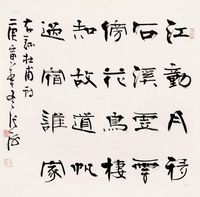 江動月移
石溪虛雲
傍花鳥棲
知故道帆
過宿誰家
右錄杜甫詩
庚寅年冬